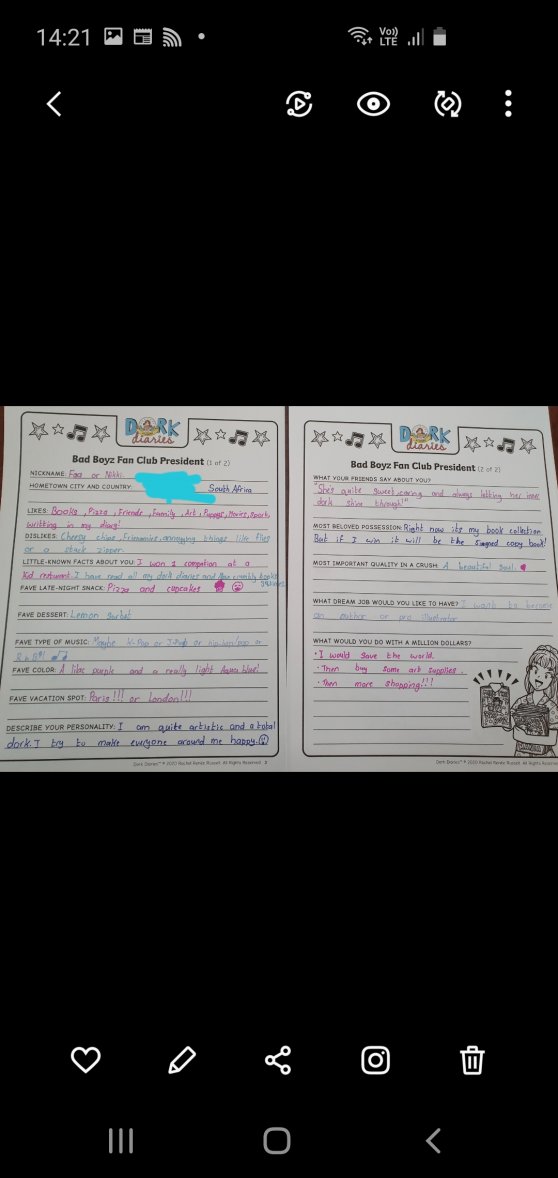 14:21
Vo))
LTE
DORK
diaries
Bad Boyz Fan Club President (1 of 2)
NICKNAME: Faa or Nikki.
HOMETOWN CITY AND COUNTRY: South Africa
LIKES: Books, Pizza, Friends, Family, Art, Puppys, Movies, Spark,
writting in my diary!
DISLIKES: Cheesy chips, Frienemies, annoying things like flies
or a stuck zipper.
LITTLE-KNOWN FACTS ABOUT YOU I won a compation at a
Kid resturant. I have read all my dork diaries and Max crumbly books
FAVE LATE-NIGHT SNACK: Pizza and cupcakes
FAVE DESSERT: Lemon Sorbet
FAVE TYPE OF MUSIC: Maybe K-Pop or J-Pop or hip-hop/pop or
R n B!!
FAVE COLOR: A lilac purple and a really light Aqua blue!
FAVE VACATION SPOT: Paris!!! or London!!!
DESCRIBE YOUR PERSONALITY: I am quite artistic and a total
dork. I try to make everyone around me happy.
Dork Diaries™ © 2020 Rachel Renée Russell. All Rights Reserved.
DORK
diaries
Bad Boyz Fan Club President (2 of 2)
WHAT YOUR FRIENDS SAY ABOUT YOU?
"She's quite sweet, caring and always letting her inner
dork shine through!"
MOST BELOVED POSSESSION: Right now its my book collection
But if I win it will be the signed copy book!
MOST IMPORTANT QUALITY IN A CRUSH: A beautiful soul.
WHAT DREAM JOB WOULD YOU LIKE TO HAVE? I want to become
an author or pro illustrator
WHAT WOULD YOU DO WITH A MILLION DOLLARS?
• I would save the world.
• Then buy some art supplies.
• Then more shopping!!!
Dork Diaries™ © 2020 Rachel Renée Russell. All Rights Reserved.